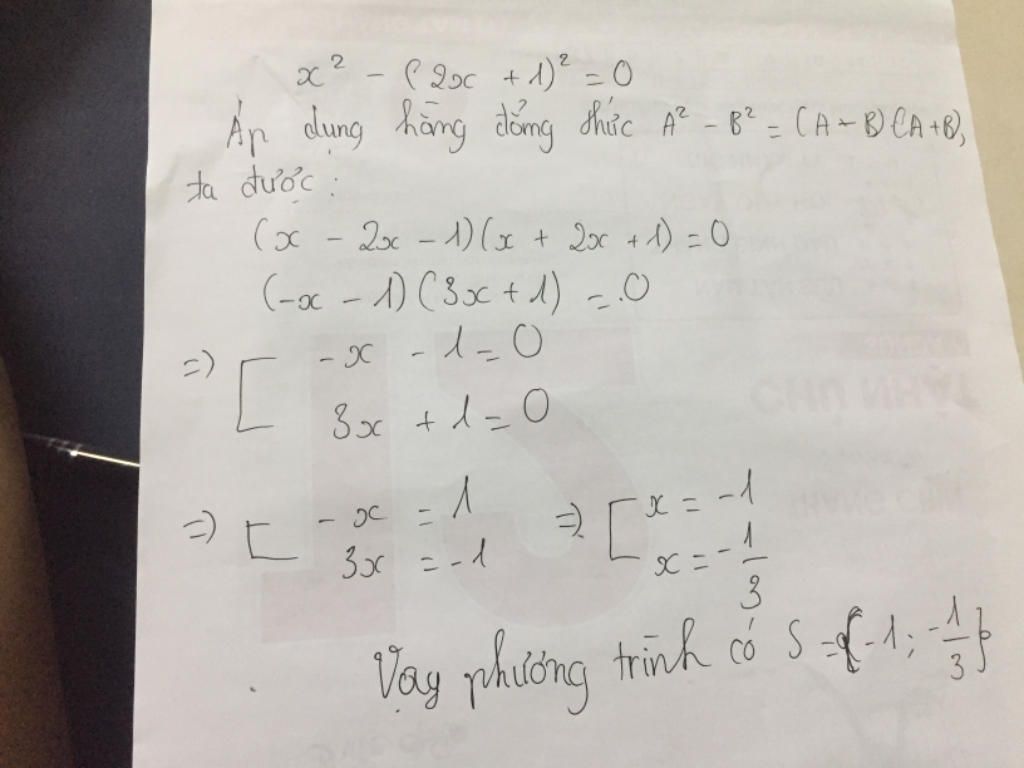 x² - (2x + 1)² = 0
Áp dụng hằng đẳng thức A² - B² = (A - B)(A + B),
ta được :
(x - 2x - 1)(x + 2x + 1) = 0
(-x - 1)(3x + 1) = 0
=> [ -x - 1 = 0
3x + 1 = 0
=> [ -x = 1 => [ x = -1
3x = -1 x = -1/3
Vậy phương trình có S = {-1; -1/3}
CHỦ NHẬT
15